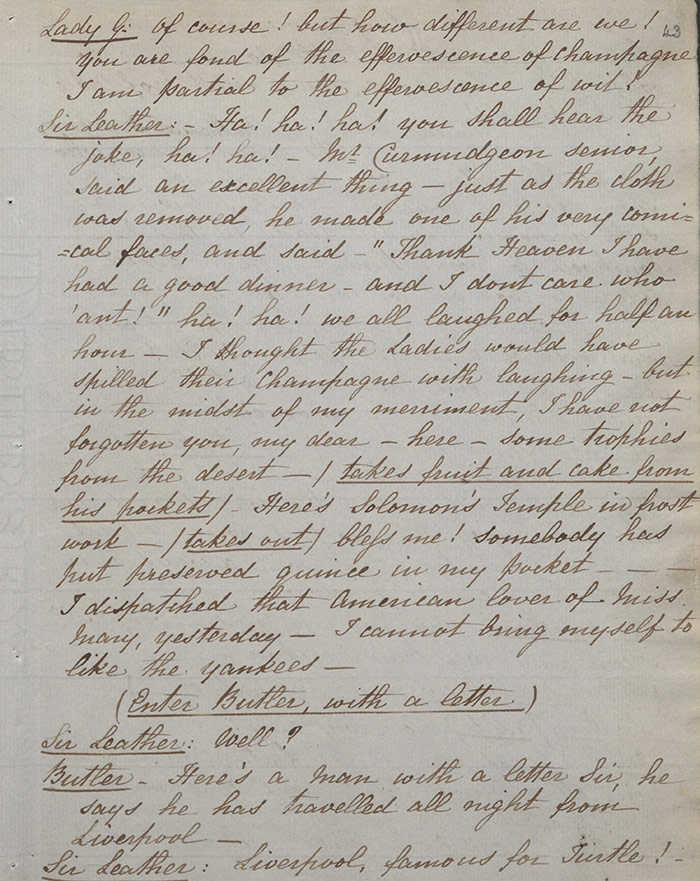 43
Lady G: Of course! but how different are we!
you are fond of the effervescence of Champagne
I am partial to the effervescence of wit!
Sir Leather: - Ha! ha! ha! you shall hear the
joke, ha! ha! - Mr. Curmudgeon senior,
said an excellent thing - just as the cloth
was removed, he made one of his very comi=
=cal faces, and said - "Thank Heaven I have
had a good dinner - and I dont care who
'ant!" ha! ha! we all laughed for half an
hour - I thought the Ladies would have
spilled their Champagne with laughing - but
in the midst of my merriment, I have not
forgotten you, my dear - here - some trophies
from the desert - / takes fruit and cake from
his pockets / - Here's Solomon's Temple in frost
work - / takes out / bless me! somebody has
put preserved quince in my Pocket - - -
I dispatched that American lover of Miss
Mary, yesterday - I cannot bring myself to
like the yankees -
(Enter Butler, with a letter.)
Sir Leather: Well?
Butler - Here's a Man with a letter Sir, he
says he has travelled all night from
Liverpool -
Sir Leather: Liverpool, famous for Turtle! -